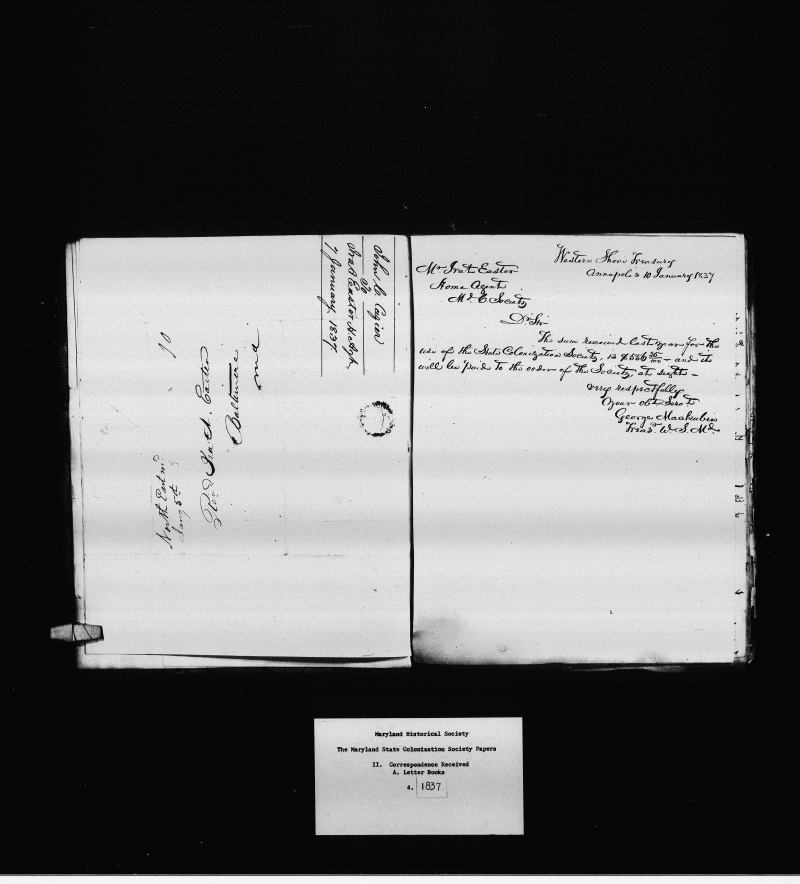 John C. Cazier
To
Ira A Easter H. Agt.
7 January. 1837.
10
Revd Ira A. Easter
Baltimore
md
North East md
Jany 5th
Western Shore Treasury
Annapolis 10 January 1837
Mr Ira A Easter
Home Agent
Md. C Society
Dr Sir
The sum received last year for the
use of the State Colonization Society, is and it
will be paid to the order of the Society, at sight –
very respectfully
Your Obt. Servt.
George Mackubin
Treasr. W. S. Md.
Maryland Historical Society
The Maryland State Colonization Society Papers
II. Correspondence Received
A. Letter Books
4. 1837